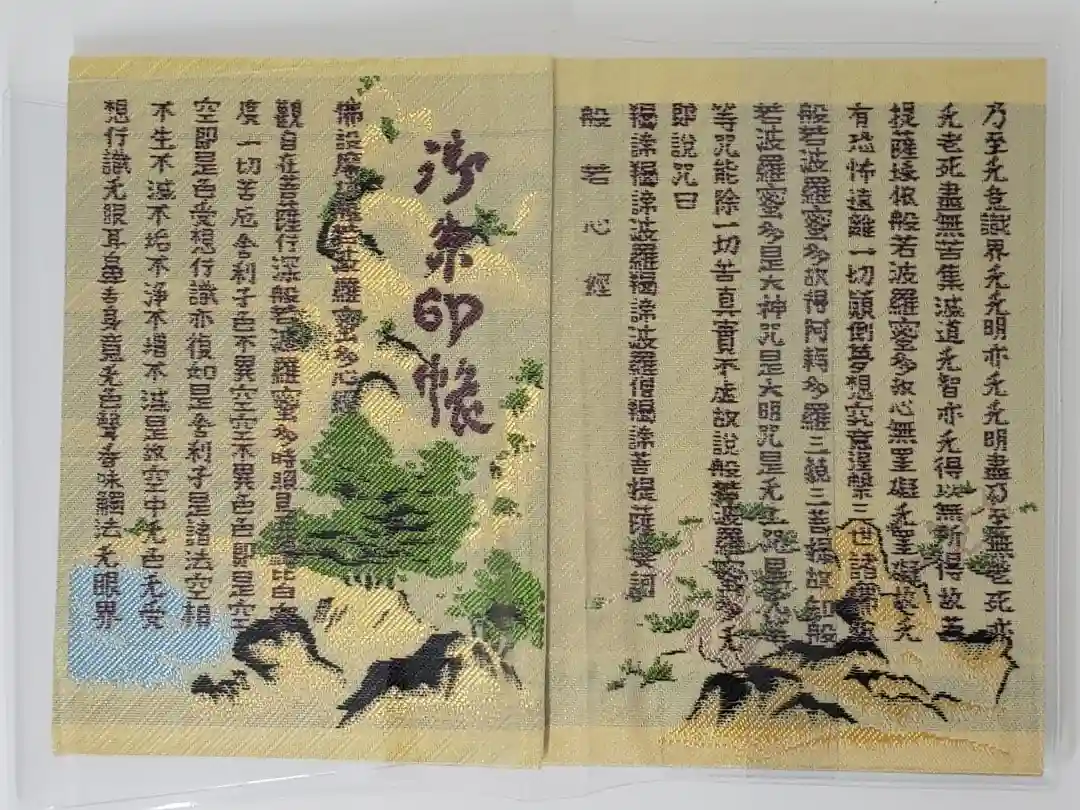 御集印帳
佛說摩訶般若波羅蜜多心經
觀自在菩薩行深般若波羅蜜多時照見五蘊皆空
度一切苦厄舍利子色不異空空不異色色即是空
空即是色受想行識亦復如是舍利子是諸法空相
不生不滅不垢不淨不增不減是故空中无色无受
想行識无眼耳鼻舌身意无色聲香味觸法无眼界
乃至无意識界无无明亦无无明盡乃至無老死亦
无老死盡無苦集滅道无智亦无得以無所得故菩
提薩埵依般若波羅蜜多故心無罣礙无罣礙故无
有恐怖遠離一切顛倒夢想究竟涅槃三世諸佛依
般若波羅蜜多故得阿耨多羅三藐三菩提故知般
若波羅蜜多是大神咒是大明咒是无上咒是无等
等咒能除一切苦真實不虛故說般若波羅蜜多咒
即說咒曰
揭諦揭諦波羅揭諦波羅僧揭諦菩提薩婆訶
般若心經